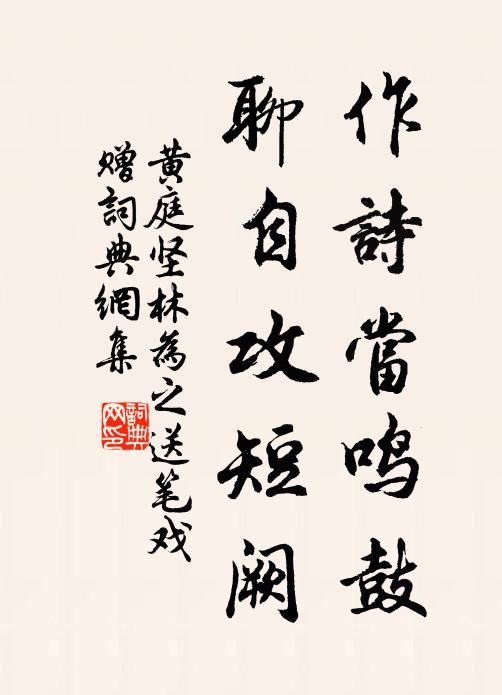 作詩當鸣鼓
聊自攻短阙
黄庭坚林為之送笔戏
赠詞典網集
詞典网印